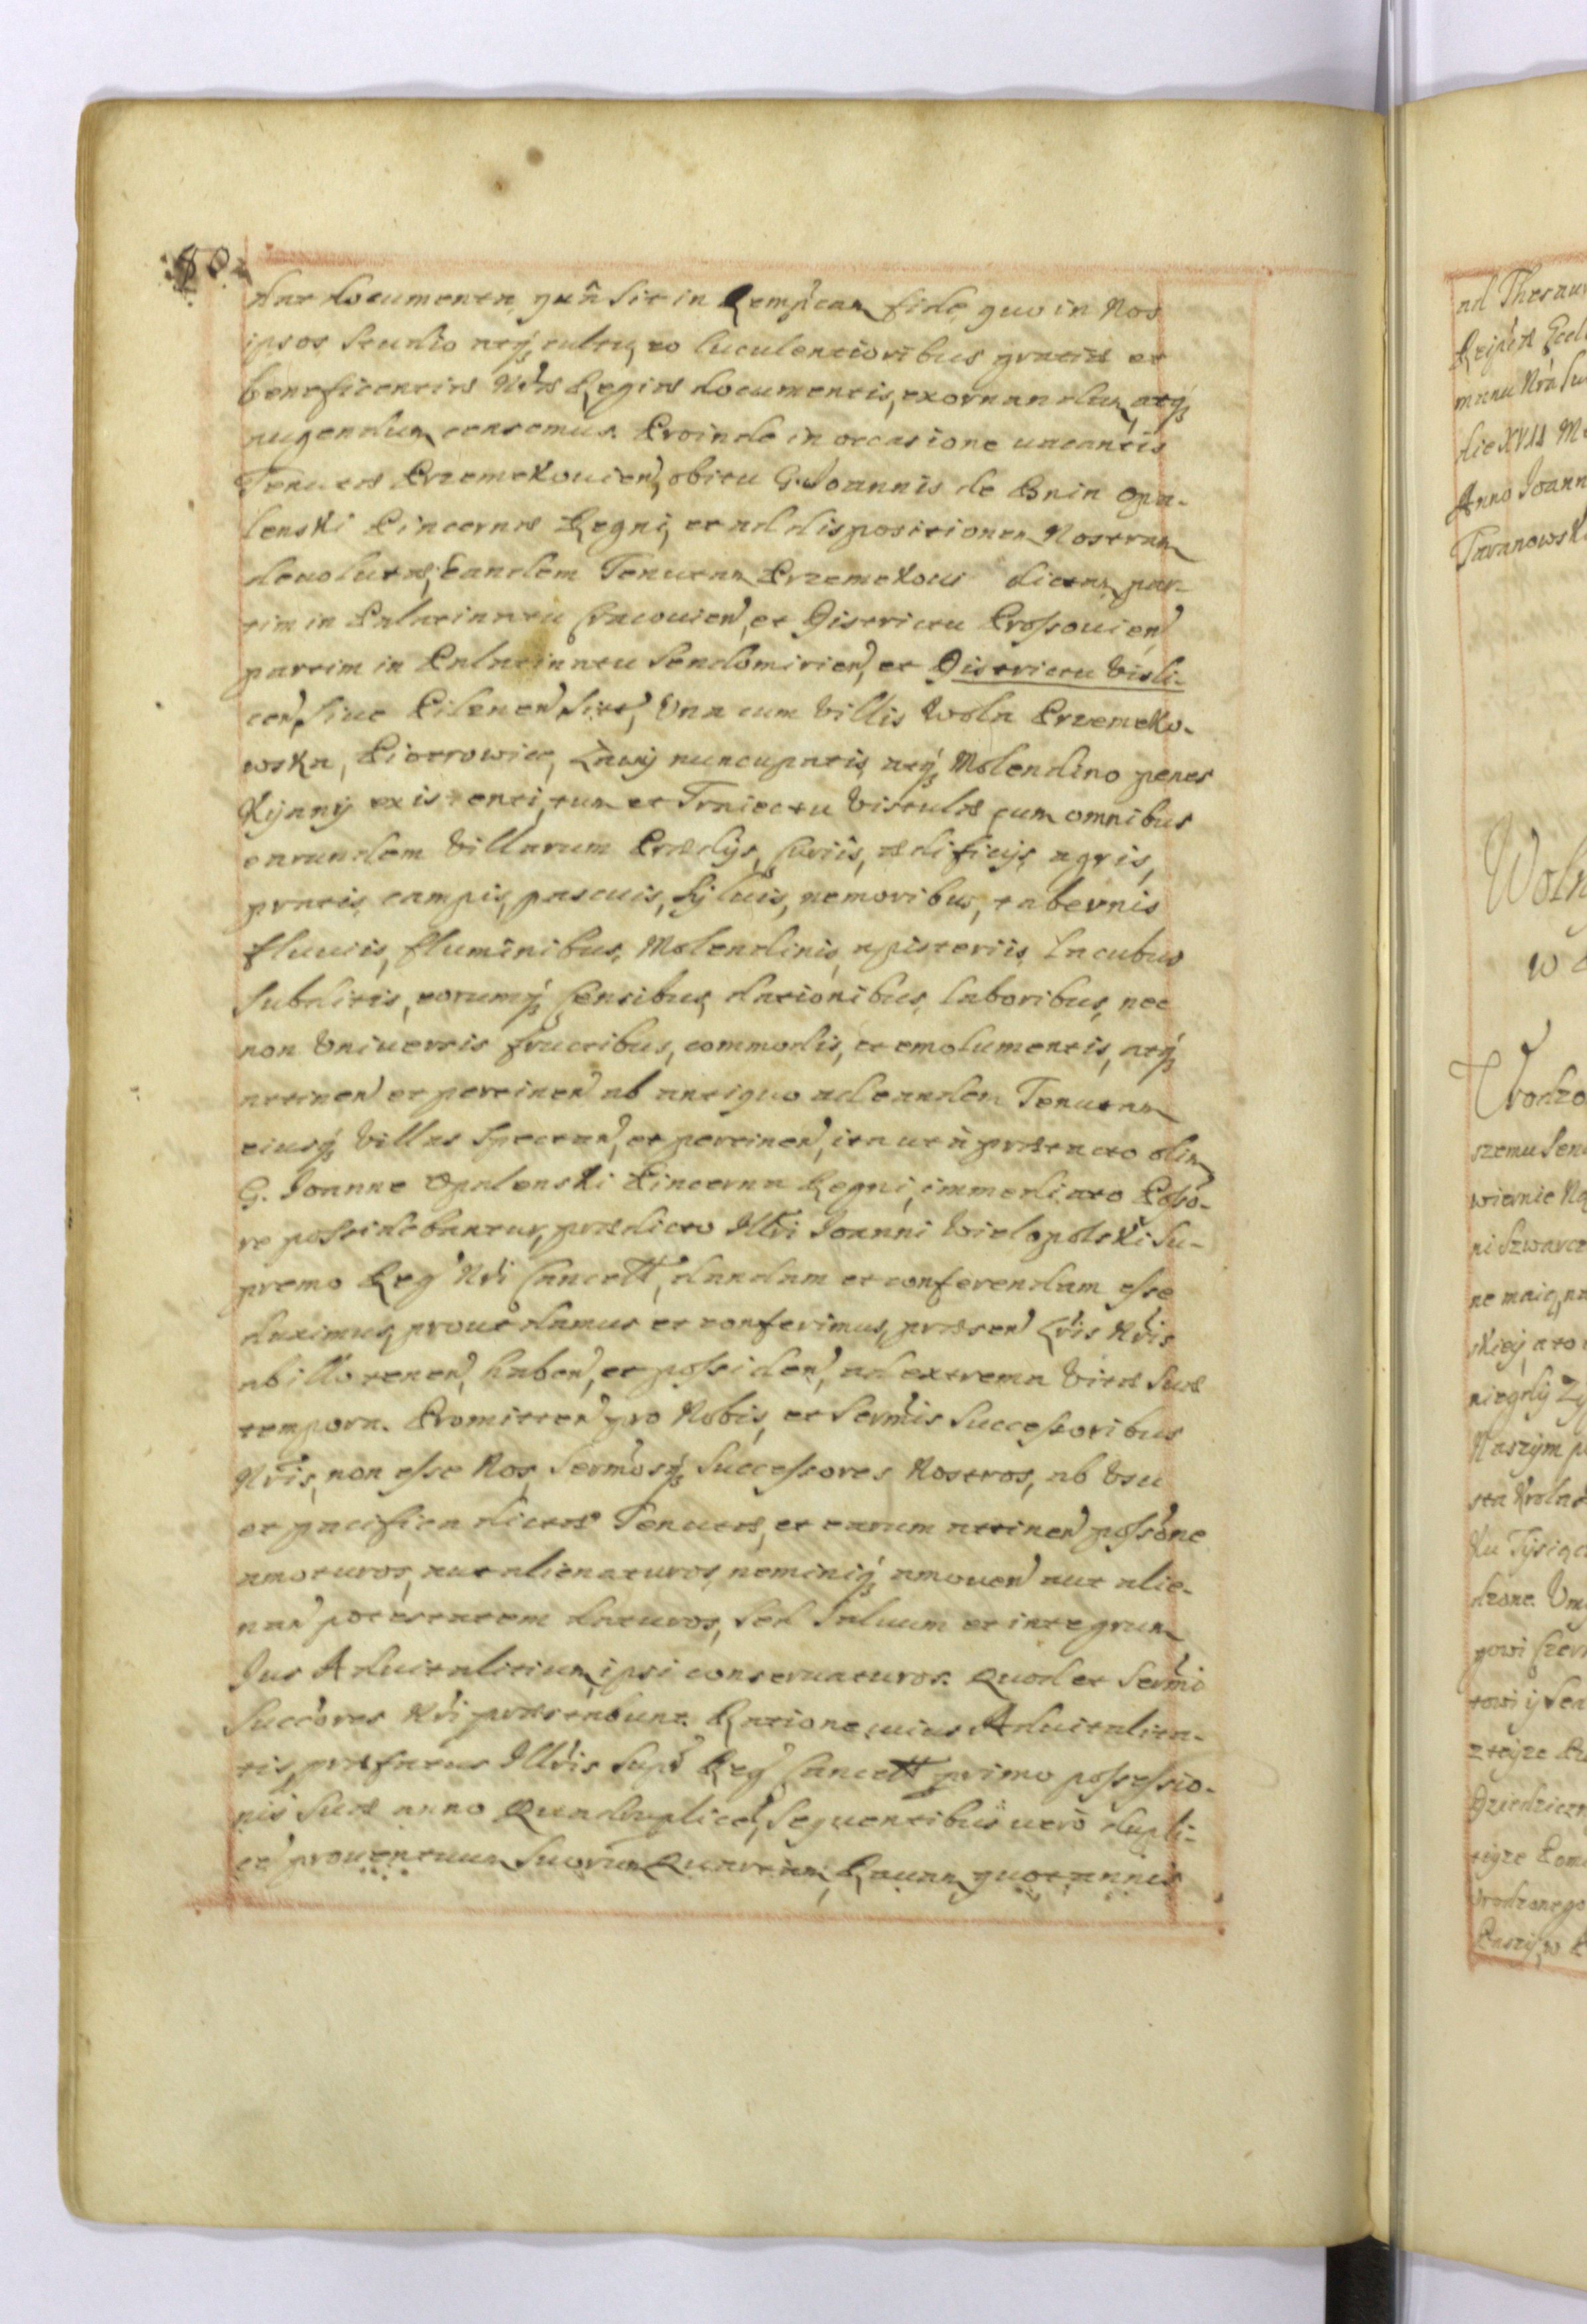 80
dat documenta, qua[n] sit in Rempcam fide, quo in Nos
ipsos studio atq́ cultu, eo luculentioribus gratiæ et
beneficentiæ Nræ Regiæ documentis, exornandum, atq́
augendum censemus. Proinde in occasione vacantis
Tenutæ Przemekovien, obitu G. Joannis de Bnin Opa-
lenski Pincernæ Regni, et ad dispositionem Nostram
devolutæ, Eandem Tenutam Przemekow dictam par-
tim in Palatinatu Cracovien, et Districtu Prossovien,
partim in Palatinatu Sendomirien, et Districtu Visli-
cen, sive Pilsnen sitæ, Vna cum Villis Wola Przemeko-
wska, Piotrowice, Ławy nuncupatis, atq́ Molendino penes
Kijany existenti, tum et Traiectu Vistulæ cum omnibus
earundem Villarum Prædijs, Curiis, ædificijs, agris,
pratis, campis, pascuis, syluis, nemoribus, tabernis
fluuiis, fluminibus, Molendinis, apisteriis, Lacubus
Subditis, eorumq́ Censibus, dationibus, laboribus, nec
non Vniversis fructibus, commodis, et emolumentis, atq́
attinen et pertinen ab antiquo ad eandem Tenutam
eiusq́ Villas spectan, et pertinen, ita ut à prætacto olim
G. Joanne Opalenski Pincerna Regni, immediato Posso-
re possidebantur, prædicto Illri Joanni Wielopolski Su-
premo Reg Nri Cancell, dandam et conferendam esse
duximus, prout damus et conferimus, præsen Lris Nris
ab illo tenen, haben, et possiden, ad extrema Vitæ suæ
tempora. Promitten pro Nobis, et Sermis Successoribus
Nris, non esse Nos, Sermosq́ Successores Nostros, ab Vsu
et pacifica dictæ Tenutæ, et earum attinen possone
amoturos, aut alienaturos, neminiq́ amouen aut alie-
nan potestatem daturos, sed Saluum et integrum
Jus Aduitalitium ipsi conservaturos. Quod et Sermi
Succores Nri præstabunt. Ratione cuius Aduitalita-
tis, præfatus Illris Supr Reg Cancell primo possessio-
nis suæ anno Quadruplicem, Sequentibus vero dupli-
cem prouentuum suorum Quartam, Rauam quotannis
ad Thesaur
manu Nra su
die XVII M
Anno Joann
Taranowski
w
szemu Sen
wiernie
ne maią, na
niegdy
Naszym
Ku Tysiąc
dzone.
Vrodzonego